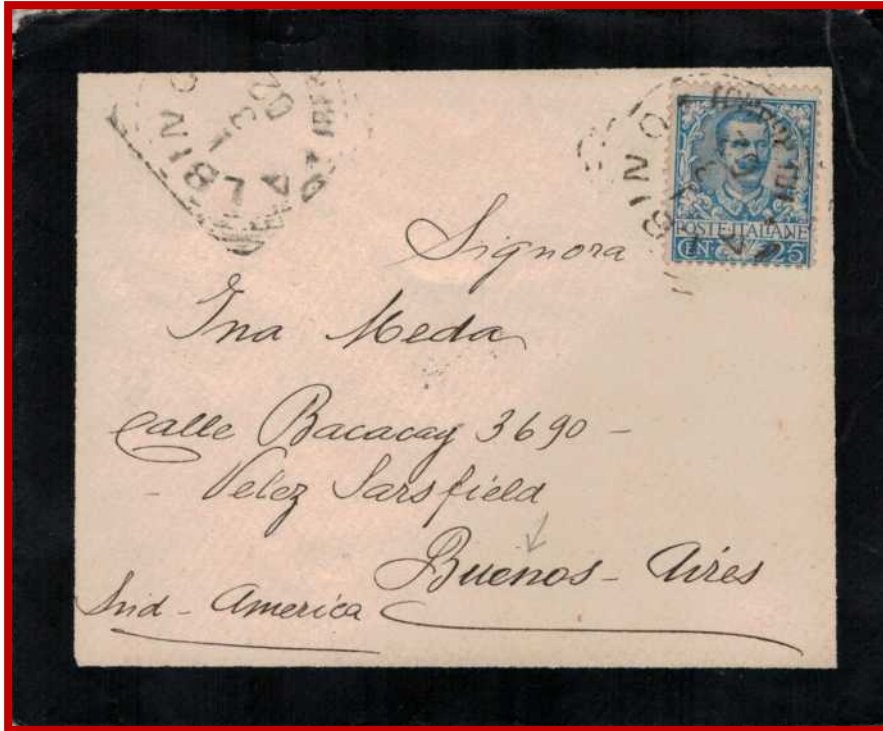 ALBINO
POSTE ITALIANE
CEN 25
Signora
Ina Meda
Calle Bacacay 3690 -
- Velez Sarsfield
Buenos - Aires
Sud - America